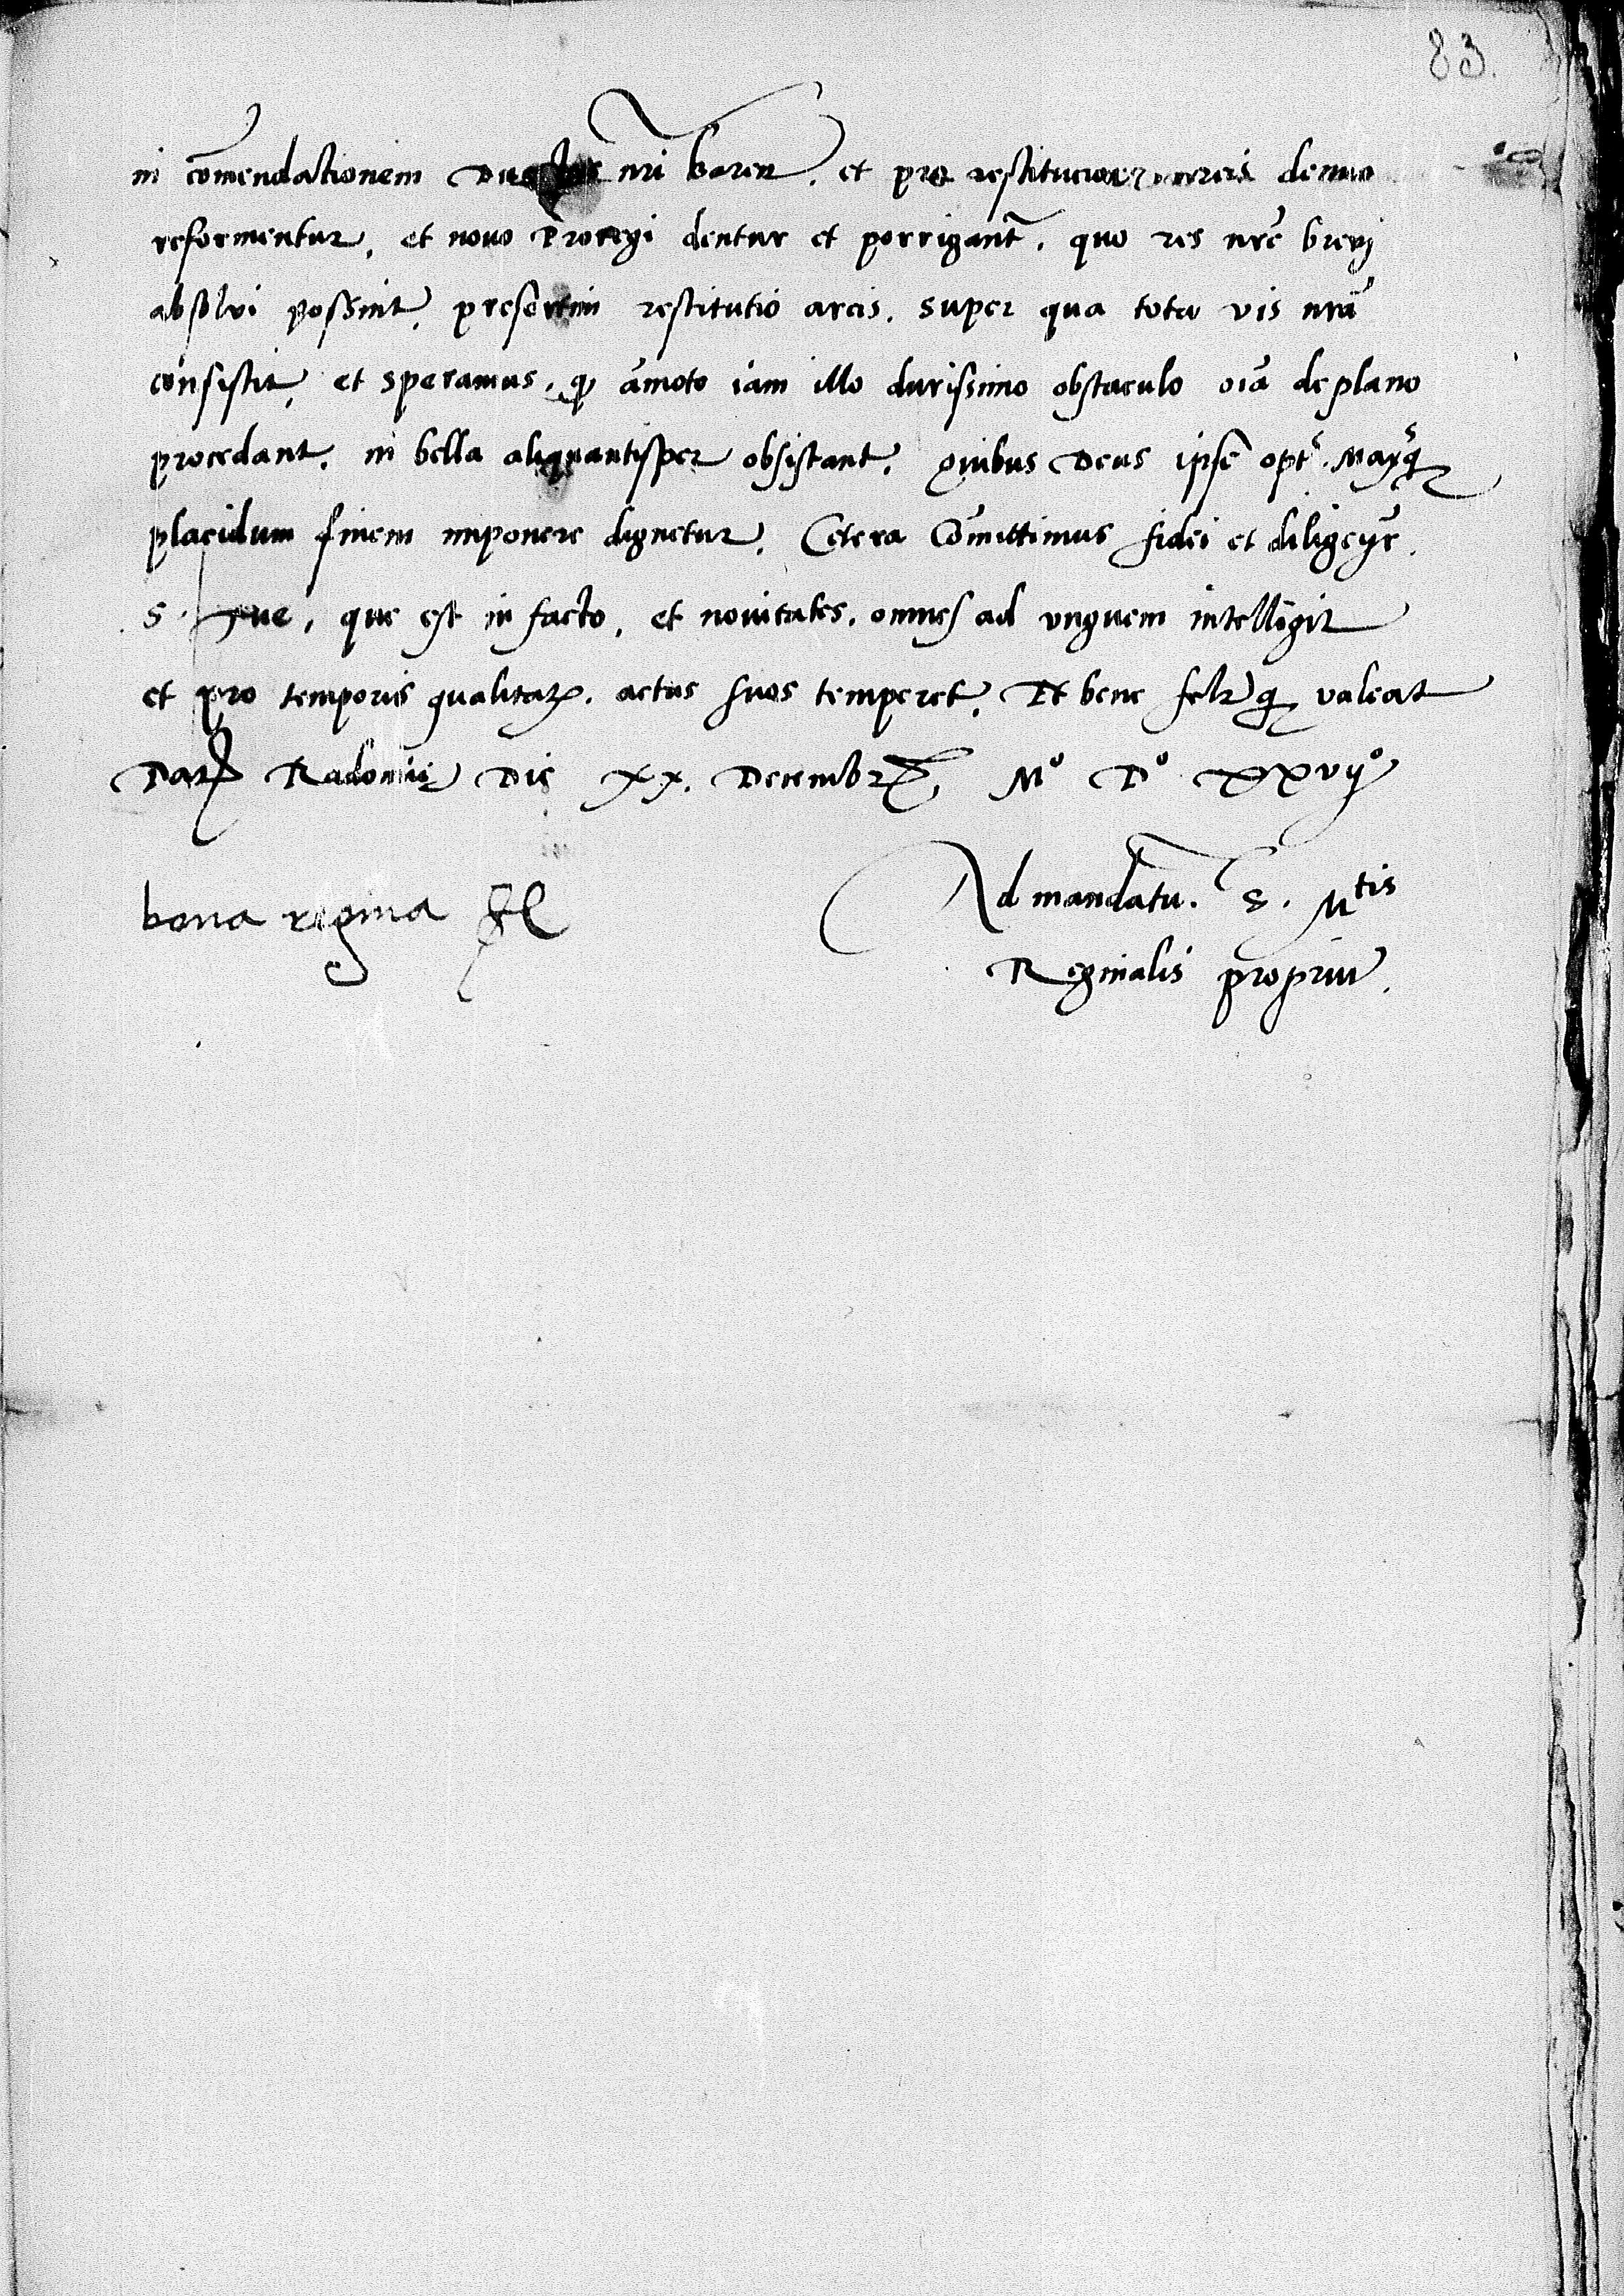 83.
in com̄endationem Ducatus nr̄i baren. et pro restitucione arcis denuo
reformentur, et nouo Proregi dentur et porrigant̄. quo res nr̄e breuj
absolui possint, presertim restitutio arcis. super qua tota vis nr̄a
consistit, et speramus. q̨ amoto iam illo durissimo obstaculo oīa de plano
procedant. ni bella aliquantisper obsistant. quibus Deus ipse opt⁹. Maxq̨⁹
placidum finem imponere dignetur. Cetera Com̄ittimus fidei et
S. Tue, que est in facto, et nouitates. omnes ad vnguem intelligit
et pro temporis qualitate. actus suos temperet. Et bene felr̄q̨ valeat
Dat̄ Radomie Die XX. Decembr̄ Mº Dº XXVIJº
bona regina
Ad mandatu. S. Mtis
Reginalis propriū.